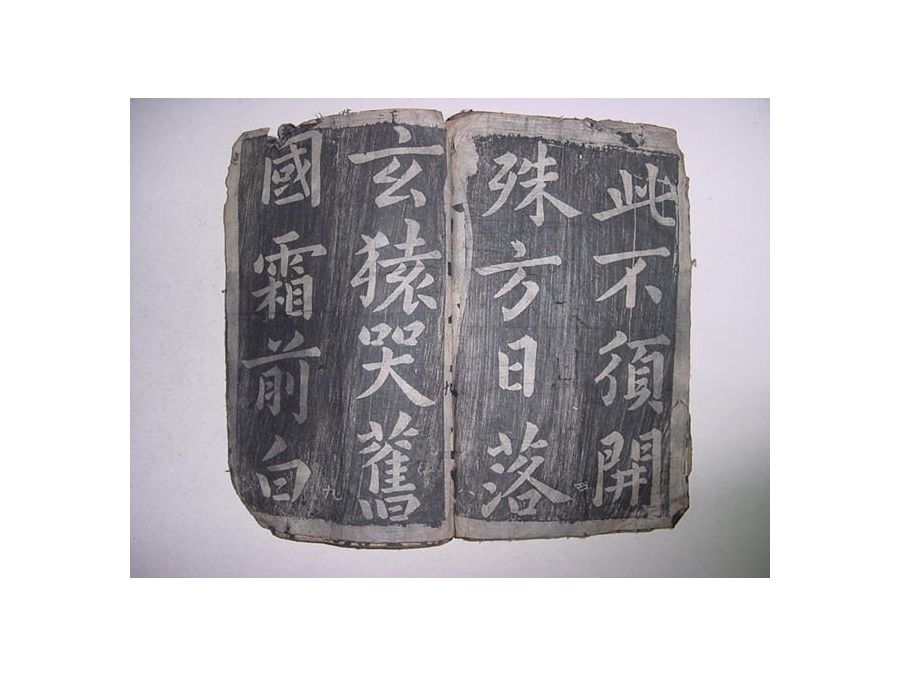 此不須開
四
殊方日落
八
玄猿哭舊
九
國霜前白